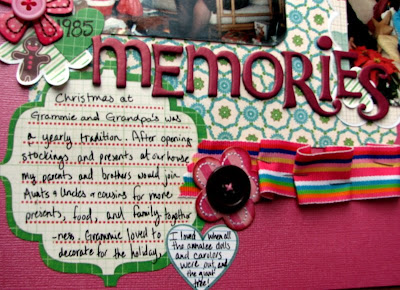 1985
MEMORIES
Christmas at
Grammie and Grandpa's was
a yearly tradition. After opening
stockings and presents at our house
my parents and brothers would join
Aunts + Uncles + cousins for more
presents, food, and family together
-ness. Grammie loved to
decorate for the holiday,
I loved when all
the annalee dolls
and carolers
were out, and
the giant
tree!